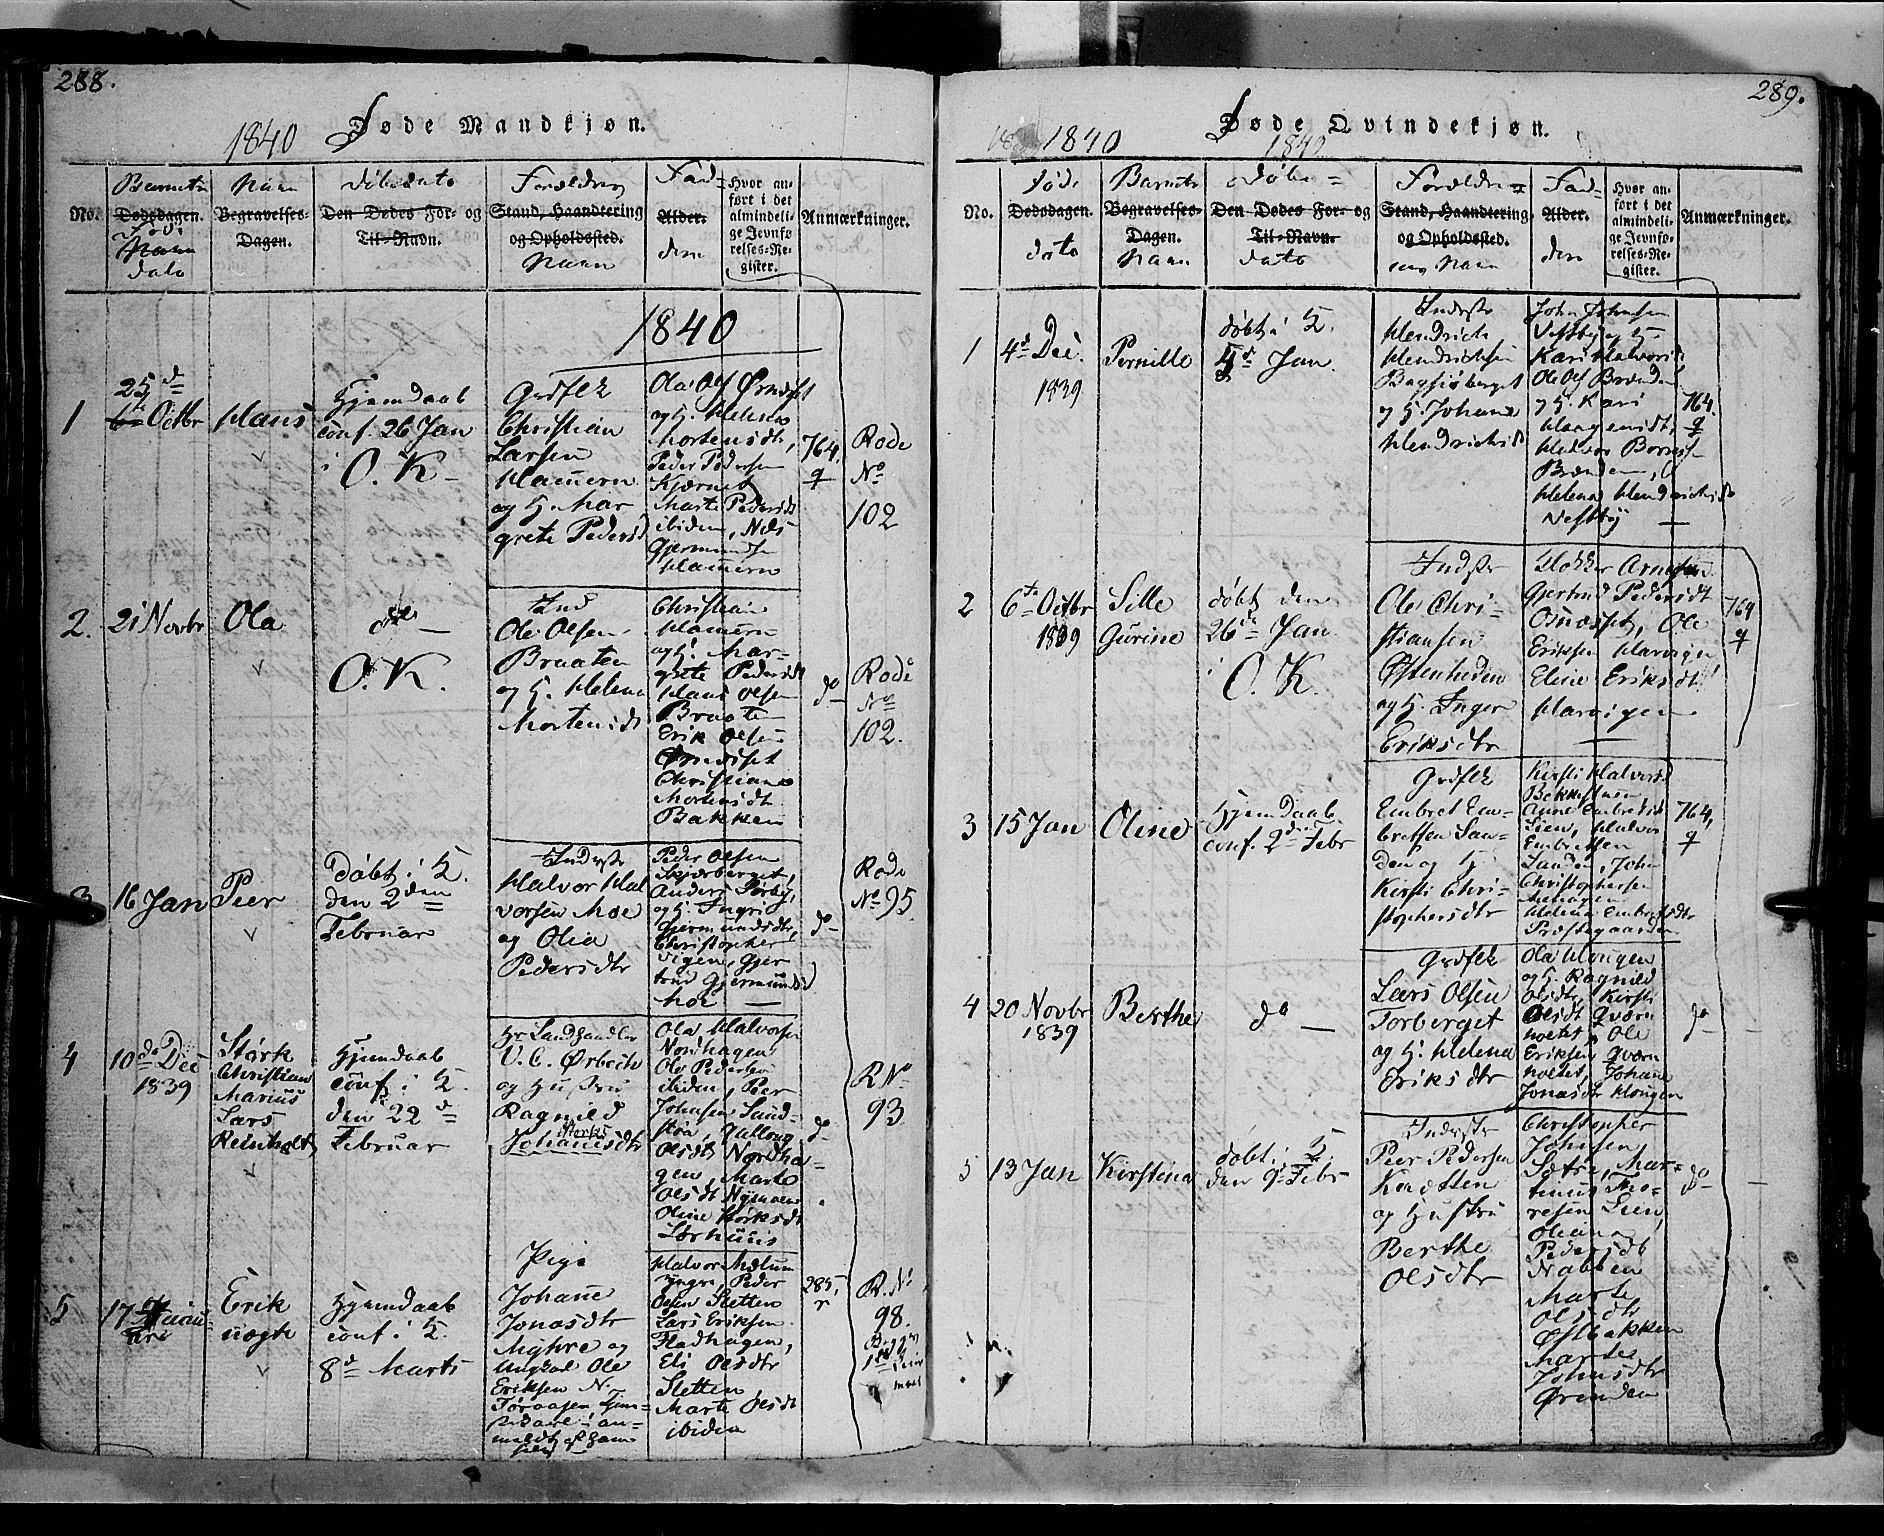 288.
1840 Døde Mandkjøn.
No.
Barnets
Dødsdagen.
Føde
Navn
dato
Navn
Begravelses-
Dagen.
Døbedato
Den Dødes For- og
Til-Navn.
Forældres
Stand, Haandtering
og Opholdssted.
Navn
Fad-
Alder.
dere
Hvor an-
ført i det
almindeli-
ge Jevnfø-
relses-Re-
gister.
Anmærkninger.
1840
1
25 d
Octbr
Hans
Hjemdaab
conf. 26 Jan
i
O. K
Grdfek
Christian
Larsen
Hamern
og H. Mar
grete Pedersd
Ola Ols Ørndset
og H. Helene
Mortensdt,
Peder Pedersen
Kjernet
Marte Pedersdt
ibidem, Nels
Gjermundsen
Hamern
764.
9
Rode
No
102
2.
21 Novbr
Ola
do
O. K.
Ind
Ole Olsen
Braaten
og H. Helena
Mortensdt
Christian
Hamern
og H. Mar-
grete Pedersdt
Hans Olsen
Braaten
Erik Olsen
Ørndset
Christiane
Mortensdt
Bakken
do
Rode
No
102.
3
16 Jan
Peer
Døbt i H.
den 2den
Februar
Inderste
Halvor Hal
vorsen Moe
og Olia
Pedersdtr
Peder Olsen
Skjærberget,
Anders Sørby,
og H. Ingri
Gjermundsdtr,
Christopher
Vigen, Gjer
trud Gjermundsd
Moe
do
Rode
No 95.
4
10 de Dec
1839
Størk
Christian
Marius
Lars
Reinholt
Hjemdaab
conf. i H.
den 22 d
Februar
Hr Landhandler
V. C. Ørbech
og Hustru
Ragnild
Størks
Johannsdtr
Ola Halvorsen
Nordhagen
Ola Pedersen
ibiden, Peer
Johnsen Sand-
Olsdt Nordha-
gen, Marte
Olsdt Nymoen
Oline Størksdt
Sørhuus
do
RNo
93
5
17
Erik
uægte
Hjemdaab
conf. i H.
8 d Marts
Pige
Johane
Jonasdtr
Myhre og
Ungkarl Ole
Eriksen N.
Halvor Mælum
Yngre, Peder
Olsen Sletten
Lars Eriksen
Fladhagen,
Eli Olsdtr
Sletten
Marte Olsdt
ibiden
285,
r
R. No
98.
289.
1840 Døde Qvindekjøn.
1840
No.
Føde
Dødsdagen.
dato
Barnets
Begravelses-
Dagen.
Navn
Døbe-
Den Dødes For- og
Til-Navn.
dato
Forældres
Stand, Haandtering
og Opholdssted.
Navn
Fad-
Alder.
dere
Hvor an-
ført i det
almindeli-
ge Jevnfø-
relses-Re-
gister.
Anmærkninger.
1
4 d Dec.
1839
Pernille
døbt i H.
5 d Jan.
Inderste
Hendrich
Hendrichsen
Bagsjøberget
og H. Johane
Hendrichsdt
John Johnsen
Vestby og H.
Kari Halvorsdt
Ole Ols Brænden
og H. Kari
Haagensdt,
Brænden,
Helena Hendrichsdt
Vestby
764.
9
2
6 te Octbr
1839
Sille
Gurine
døbt den
26 de Jan.
i
O. K.
Indster
Ole Chri-
stiansen
Østenheden
og H. Inger
Eriksdtr
Arnesen
Gjertrud Pedersdt
Osnæsset, Ole
Eriksen Harvigen
Eline Eriksdt
Harvigen
764
9
3
15 Jan
Oline
Hjemdaab
conf. 2den Febr
Grdfek
Embret Em-
bretsen San-
den og H.
Kirsti Chri-
stophersdtr
Kirsti Halvorsd
Bekkestuen
Anne Embretsdt
Lien, Halvor
Embretsen
Sanden, John
Christophersen
Helena Embretsdtr
Præstegaarden
764,
9
4
20 Novbr
1839
Berthe
do
Grdfek
Lars Olsen
Torberget
og H. Helena
Eriksdtr
Ola Hougen
og H. Ragnild
Olsdtr, Kirsti
Olsdt Qværn
noetet, Ole
Eriksen Qværn
noetet, Johane
Jonasdtr Hougen
do
5
13 Jan
Kirstina
døbt i H.
den 9 d Febr
Inderste
Peer Pedersen
Knætten
og Hustru
Berthe
Olsdtr
Christopher
Johnsen
Sætre, Mar-
tinus Tho-
resen Lien,
Oliana
Pedersdt
Nabben
Marte
Olsdtr
Østbakken
Marte
Johnsdtr
Ørenden
do